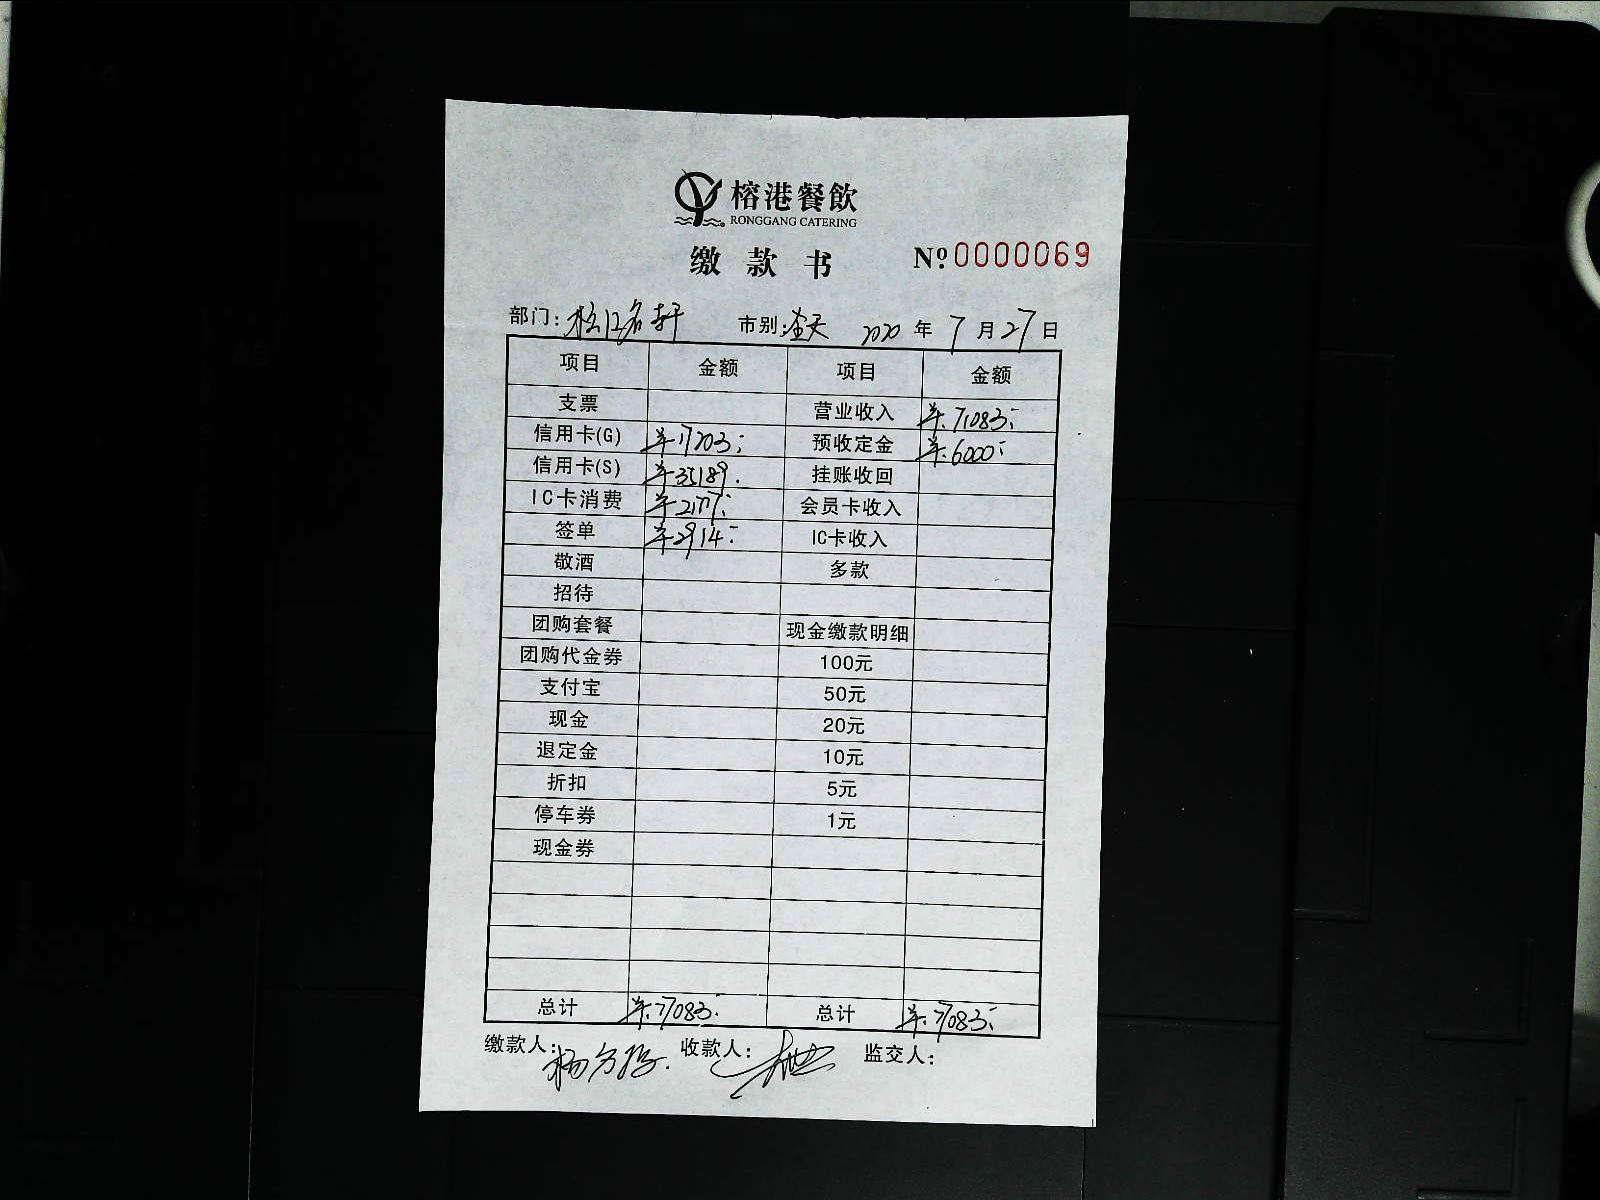 榕港餐飲
RONGGANG CATERING
缴款书 Nº 0000069
部门: 市别: 全天 2020 年 7 月 27 日
项目 金额 项目 金额
支票 营业收入 ¥71083.-
信用卡(G) ¥17203.- 预收定金 ¥6000.-
信用卡(S) ¥35189.- 挂账收回
IC卡消费 ¥21777.- 会员卡收入
签单 ¥2914.- IC卡收入
敬酒 多款
招待
团购套餐 现金缴款明细
团购代金券 100元
支付宝 50元
现金 20元
退定金 10元
折扣 5元
停车券 1元
现金券
总计 ¥77083.- 总计 ¥77083.-
缴款人: 收款人: 监交人: